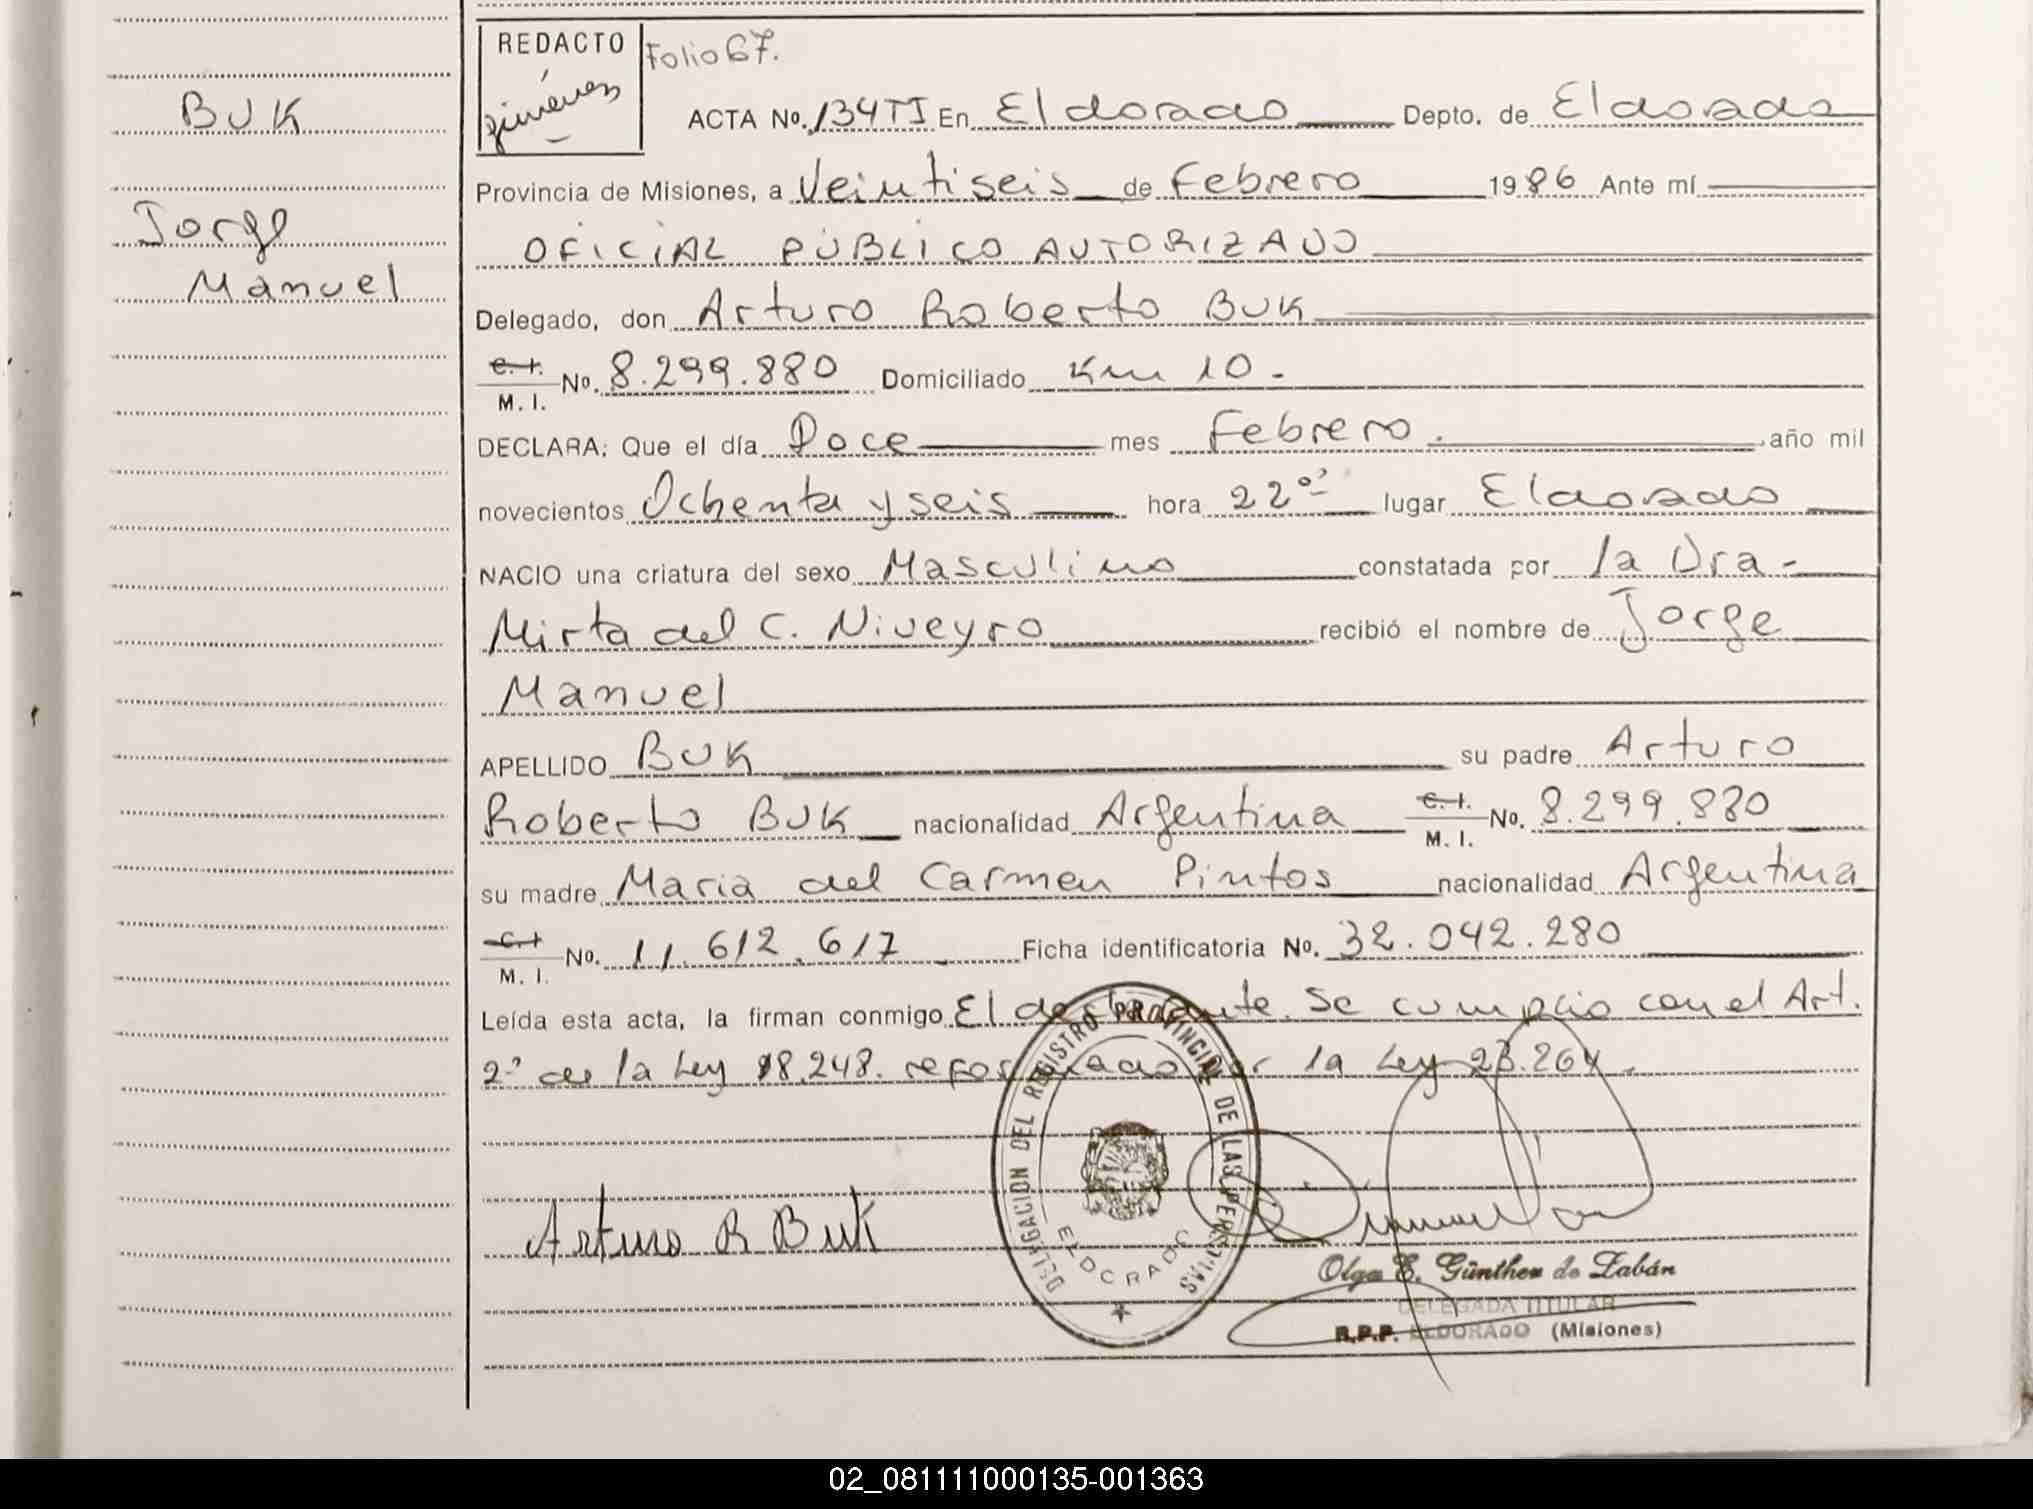 BUK
Jorge
Manuel
REDACTO
Giménez
Folio 67.
ACTA No. 134 TI En Eldorado Depto. de Eldorado
Provincia de Misiones, a Veintiseis de Febrero 1986 Ante mí
OFICIAL PÚBLICO AUTORIZADO
Delegado, don Arturo Roberto BUK
C. I.
M. I. No. 8.299.880 Domiciliado Km 10.-
DECLARA: Que el día Doce mes Febrero. año mil
novecientos Ochenta y seis hora 22 lugar Eldorado
NACIO una criatura del sexo Masculino constatada por la Dra-
Mirta del C. Niveyro recibió el nombre de Jorge
Manuel
APELLIDO BUK su padre Arturo
Roberto BUK nacionalidad Argentina C. I. M. I. No. 8.299.880
su madre Maria del Carmen Pintos nacionalidad Argentina
C. I.
M. I. No. 11.612.617 Ficha identificatoria No. 32.042.280
Leída esta acta, la firman conmigo El declarante. Se cumplio con el Art.
2º de la Ley 18.248. reformado por la Ley 23.264.
DELEGACION DEL REGISTRO PROVINCIAL DE LAS PERSONAS
ELDORADO
Arturo R Buk
Olga E. Günther de Zabán
DELEGADA TITULAR
R.P.P. ELDORADO (Misiones)
02_081111000135-001363